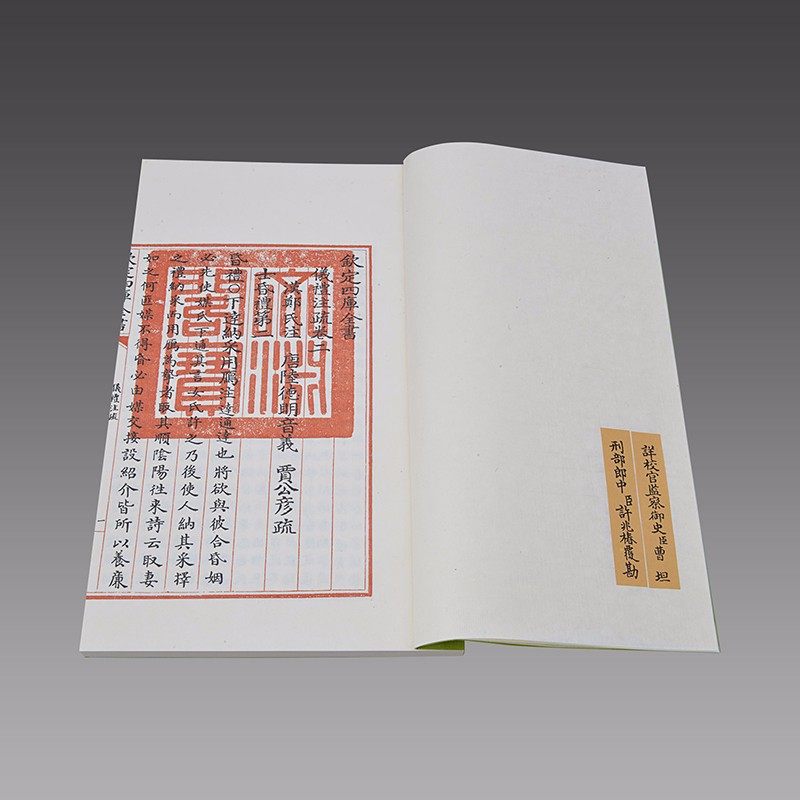 詳校官監察御史臣曹坦
刑部郎中臣許兆椿覆勘
欽定四庫全書
儀禮注疏卷二
漢鄭氏注 唐陸德明音義 賈公彥疏
士昏禮第二
昏禮○下達納采用鴈注達通達也將欲與彼合昏姻
必先使媒氏下通其言女氏許之乃後使人納其采擇
之禮納采而用鴈為摯者取其順陰陽徃來詩云取妻
如之何匪媒不得昏必由媒交接設紹介皆所以養廉
欽定四庫全書
儀禮注疏
一
文淵閣寶